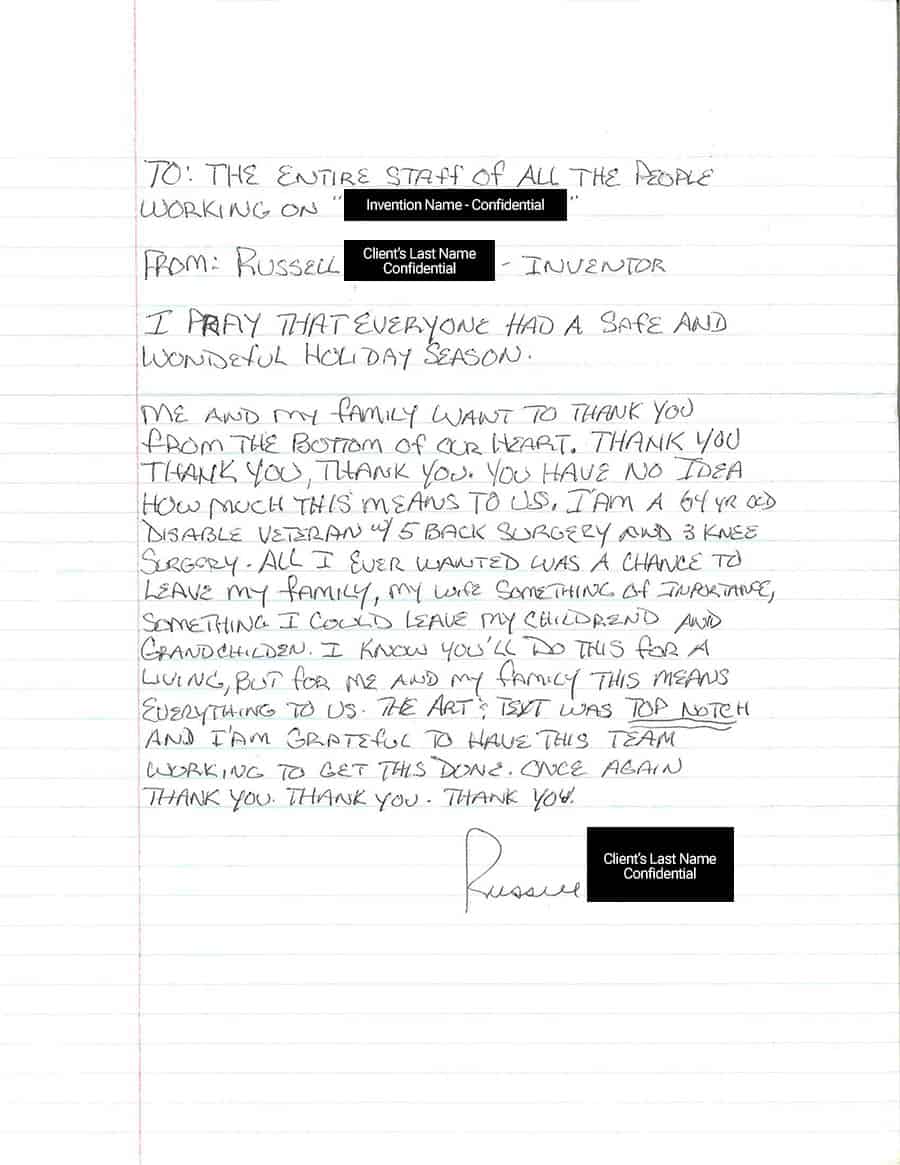 TO: THE ENTIRE STAFF OF ALL THE PEOPLE
WORKING ON "Invention Name - Confidential"
FROM: RUSSELL Client's Last Name Confidential - INVENTOR
I PRAY THAT EVERYONE HAD A SAFE AND
WONDEFUL HOLIDAY SEASON.
ME AND MY FAMILY WANT TO THANK YOU
FROM THE BOTTOM OF OUR HEART. THANK YOU
THANK YOU, THANK YOU. YOU HAVE NO IDEA
HOW MUCH THIS MEANS TO US. I'AM A 64 YR OLD
DISABLE VETERAN W/ 5 BACK SURGERY AND 3 KNEE
SURGERY. ALL I EVER WANTED WAS A CHANCE TO
LEAVE MY FAMILY, MY WIFE SOMETHING OF INPORTANCE,
SOMETHING I COULD LEAVE MY CHILDREND AND
GRANDCHILDEN. I KNOW YOU'LL DO THIS FOR A
LIVING, BUT FOR ME AND MY FAMILY THIS MEANS
EVERYTHING TO US. THE ART & TEXT WAS TOP NOTCH
AND I'AM GRATEFUL TO HAVE THIS TEAM
WORKING TO GET THIS DONE. ONCE AGAIN
THANK YOU. THANK YOU. THANK YOU.
Russell Client's Last Name Confidential